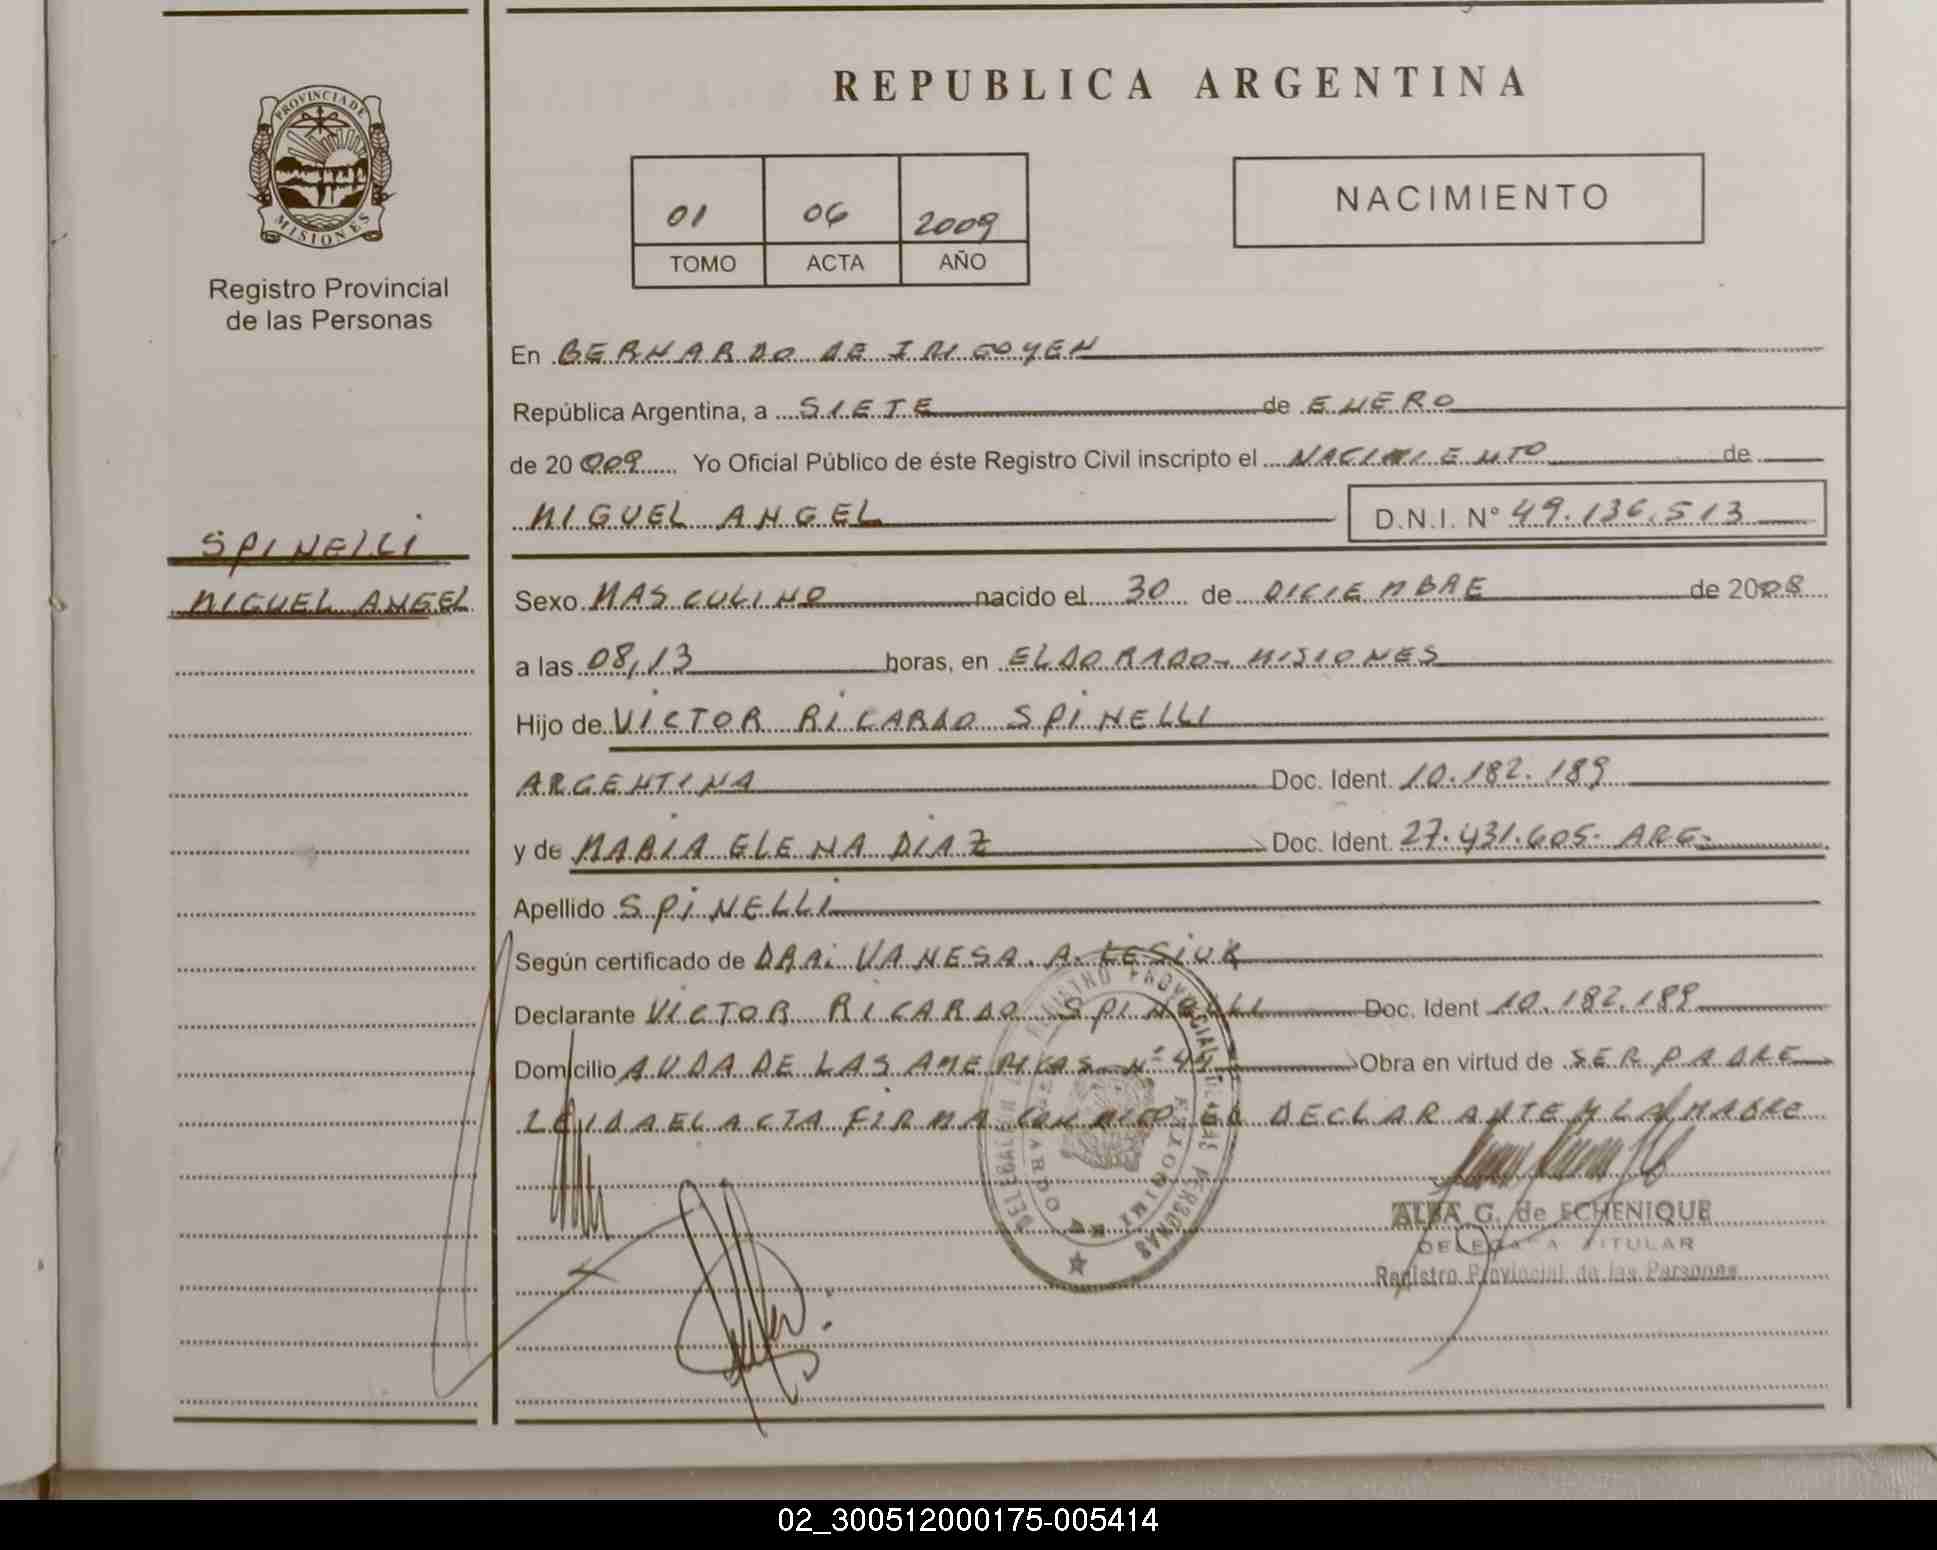 REPUBLICA ARGENTINA
PROVINCIA DE
MISIONES
Registro Provincial
de las Personas
01 06 2009
TOMO ACTA AÑO
NACIMIENTO
En BERNARDO DE IRIGOYEN
República Argentina, a SIETE de ENERO
de 20 009 Yo Oficial Público de éste Registro Civil inscripto el NACIMIENTO de
MIGUEL ANGEL D.N.I. N° 49.136.513
SPINELLI
MIGUEL ANGEL
Sexo MASCULINO nacido el 30 de DICIEMBRE de 2008
a las 08,13 horas, en ELDORADO- MISIONES
Hijo de VICTOR RICARDO SPINELLI
ARGENTINA Doc. Ident. 10.182.189
y de MARIA ELENA DIAZ Doc. Ident. 27.431.605- ARG-
Apellido SPINELLI
Según certificado de DRA. VANESA. A. LESIUK
Declarante VICTOR RICARDO SPINELLI Doc. Ident 10.182.189
Domicilio AVDA DE LAS AMERICAS N° Obra en virtud de SER PADRE
LEIDA EL ACTA FIRMA CONMIGO EL DECLARANTE Y LA MADRE
REGISTRO PROVINCIAL DE LAS PERSONAS
ALBA G. de ECHENIQUE
DELEGADA TITULAR
Registro Provincial de las Personas
02_300512000175-005414